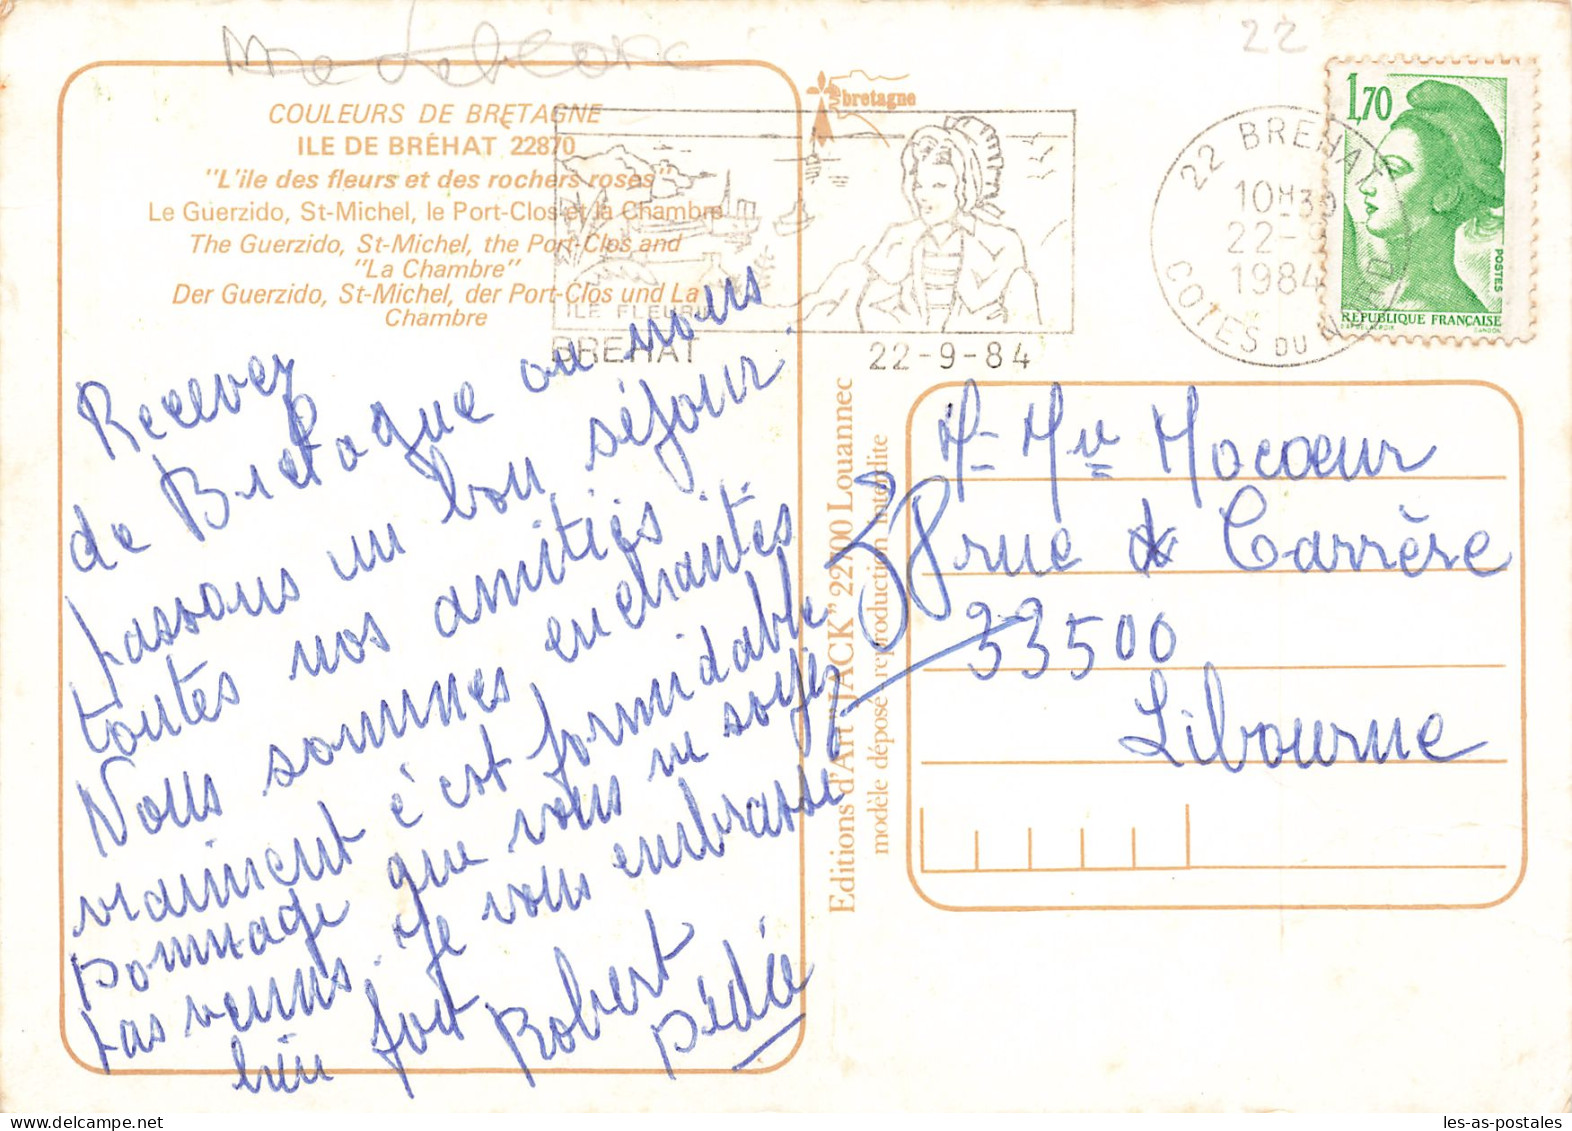 22
COULEURS DE BRETAGNE
ILE DE BRÉHAT 22870
"L'ile des fleurs et des rochers roses"
Le Guerzido, St-Michel, le Port-Clos et la Chambre
The Guerzido, St-Michel, the Port-Clos and
"La Chambre"
Der Guerzido, St-Michel, der Port-Clos und La
Chambre
bretagne
ILE FLEURIE
BREHAT
22-9-84
22 BREHAT
10H30
22-9
1984
COTES DU NORD
1,70
POSTES
RÉPUBLIQUE FRANÇAISE
Recevez
de Bretagne ou nous
passons un bon séjour.
toutes nos amitiés...
Nous sommes enchantés
vraiment c'est formidable
Dommage que vous ne soyez
pas venus. Je vous embrasse
bien fort Robert
Dédée
Editions d'Art "JACK" 22700 Louannec
modèle déposé reproduction interdite
Mr Mme Mocoeur
38 rue Carrère
33500
Libourne
les-as-postales